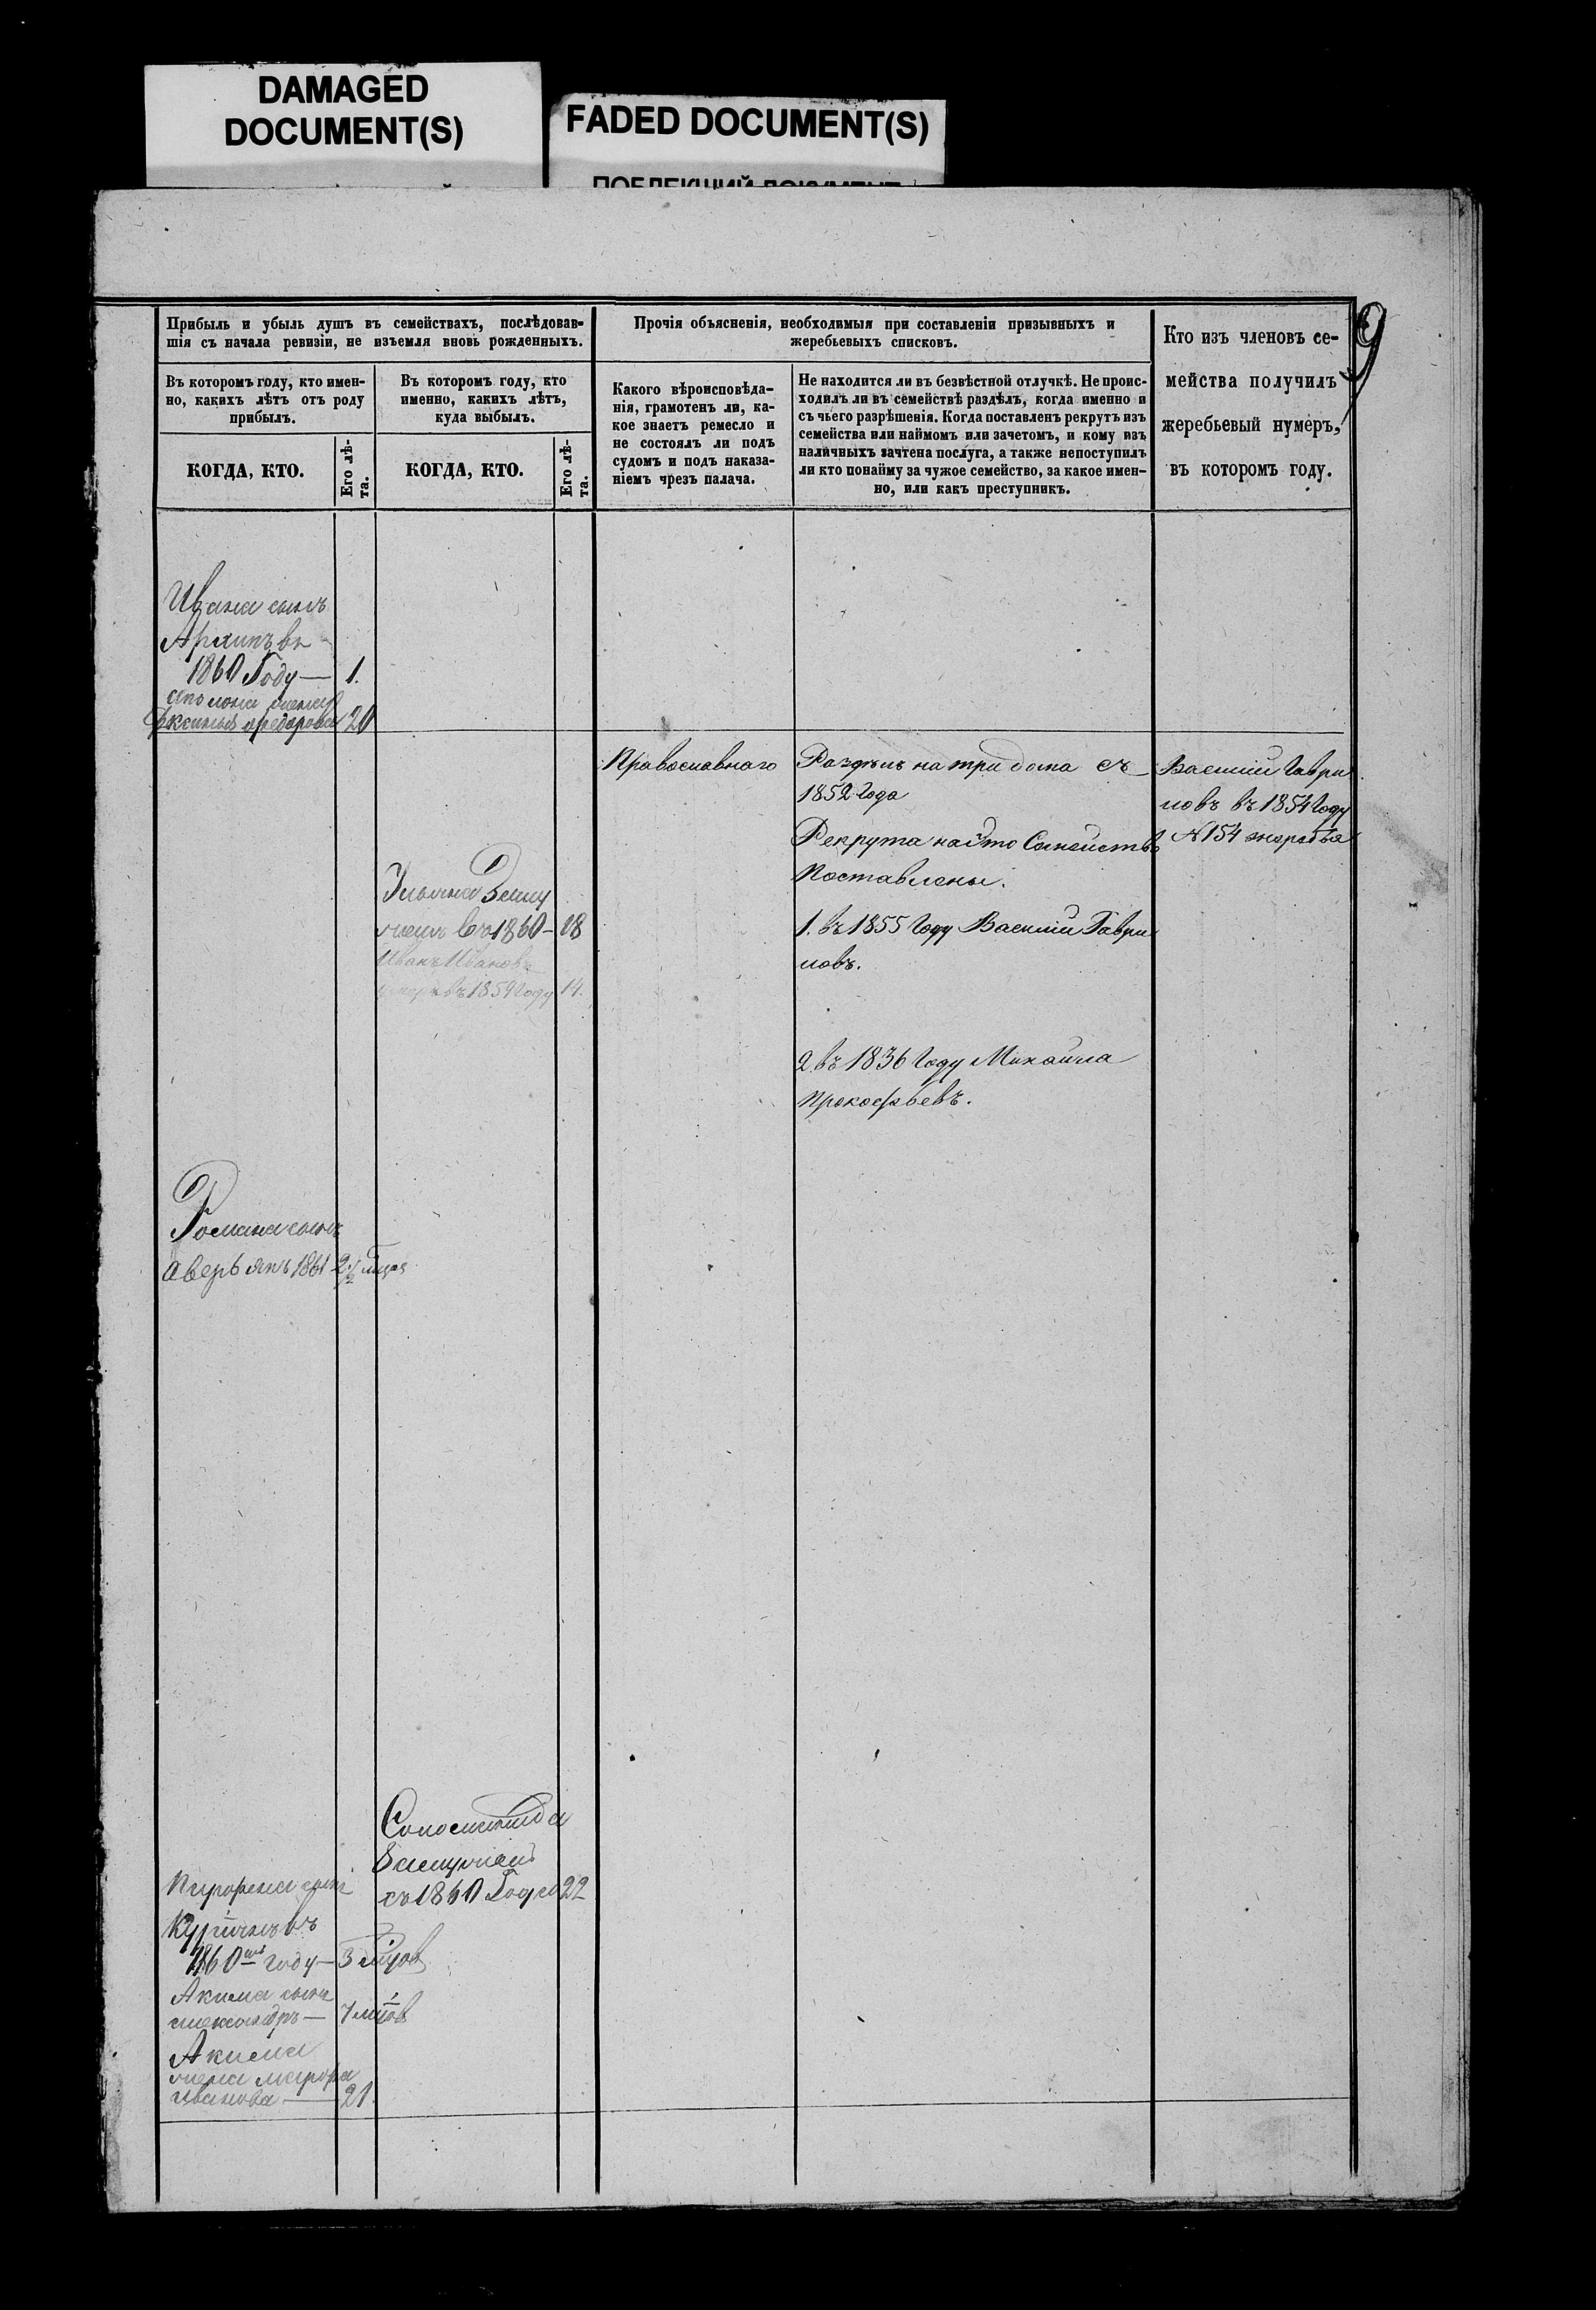 DAMAGED
DOCUMENT(S)
FADED DOCUMENT(S)
9
Прибыль и убыль душъ въ семействахъ, послѣдовав-
шія съ начала ревизіи, не изъемля вновь рожденныхъ.
Прочія объясненія, необходимыя при составленіи призывныхъ и
жеребьевыхъ списковъ.
Кто изъ членовъ се-
мейства получилъ
жеребьевый нумеръ,
въ которомъ году.
Въ которомъ году, кто имен-
но, какихъ лѣтъ отъ роду
прибылъ.
Въ которомъ году, кто
именно, какихъ лѣтъ,
куда выбылъ.
Какого вѣроисповѣда-
нія, грамотенъ ли, ка-
кое знаетъ ремесло и
не состоялъ ли подъ
судомъ и подъ наказа-
ніемъ чрезъ палача.
Не находится ли въ безвѣстной отлучкѣ. Не проис-
ходилъ ли въ семействѣ раздѣлъ, когда именно и
съ чьего разрѣшенія. Когда поставленъ рекрутъ изъ
семейства или наймомъ или зачетомъ, и кому изъ
наличныхъ зачтена послуга, а также непоступилъ
ли кто понайму за чужое семейство, за какое имен-
но, или какъ преступникъ.
КОГДА, КТО.
Его лѣ-
та.
КОГДА, КТО.
Его лѣ-
та.
Ивана сынъ
Архипъ въ
1860 Году — 1.
жена
федорова 20
Православнаго
Раздѣлъ на три дома съ
1852 Года
Рекрута на это Семейство
Поставлены.
1. въ 1855 Году Василій Гаври
ловъ.
2. въ 1836 Году Михаила
Прокофьевъ.
Василій Гаври
ловъ въ 1854 Году
№ 154 жеребья
Ульяна Заму
жемъ въ 1860 — 18
Иванъ Ивановъ
въ 1859 Году 14.
Романа сынъ
Аверьянъ 1861 2 1/2
замужемъ
съ 1860 Года 22
сынъ
въ
1860 году — 3
Акима сынъ
Александръ — 7
Акима
жена
Иванова — 21